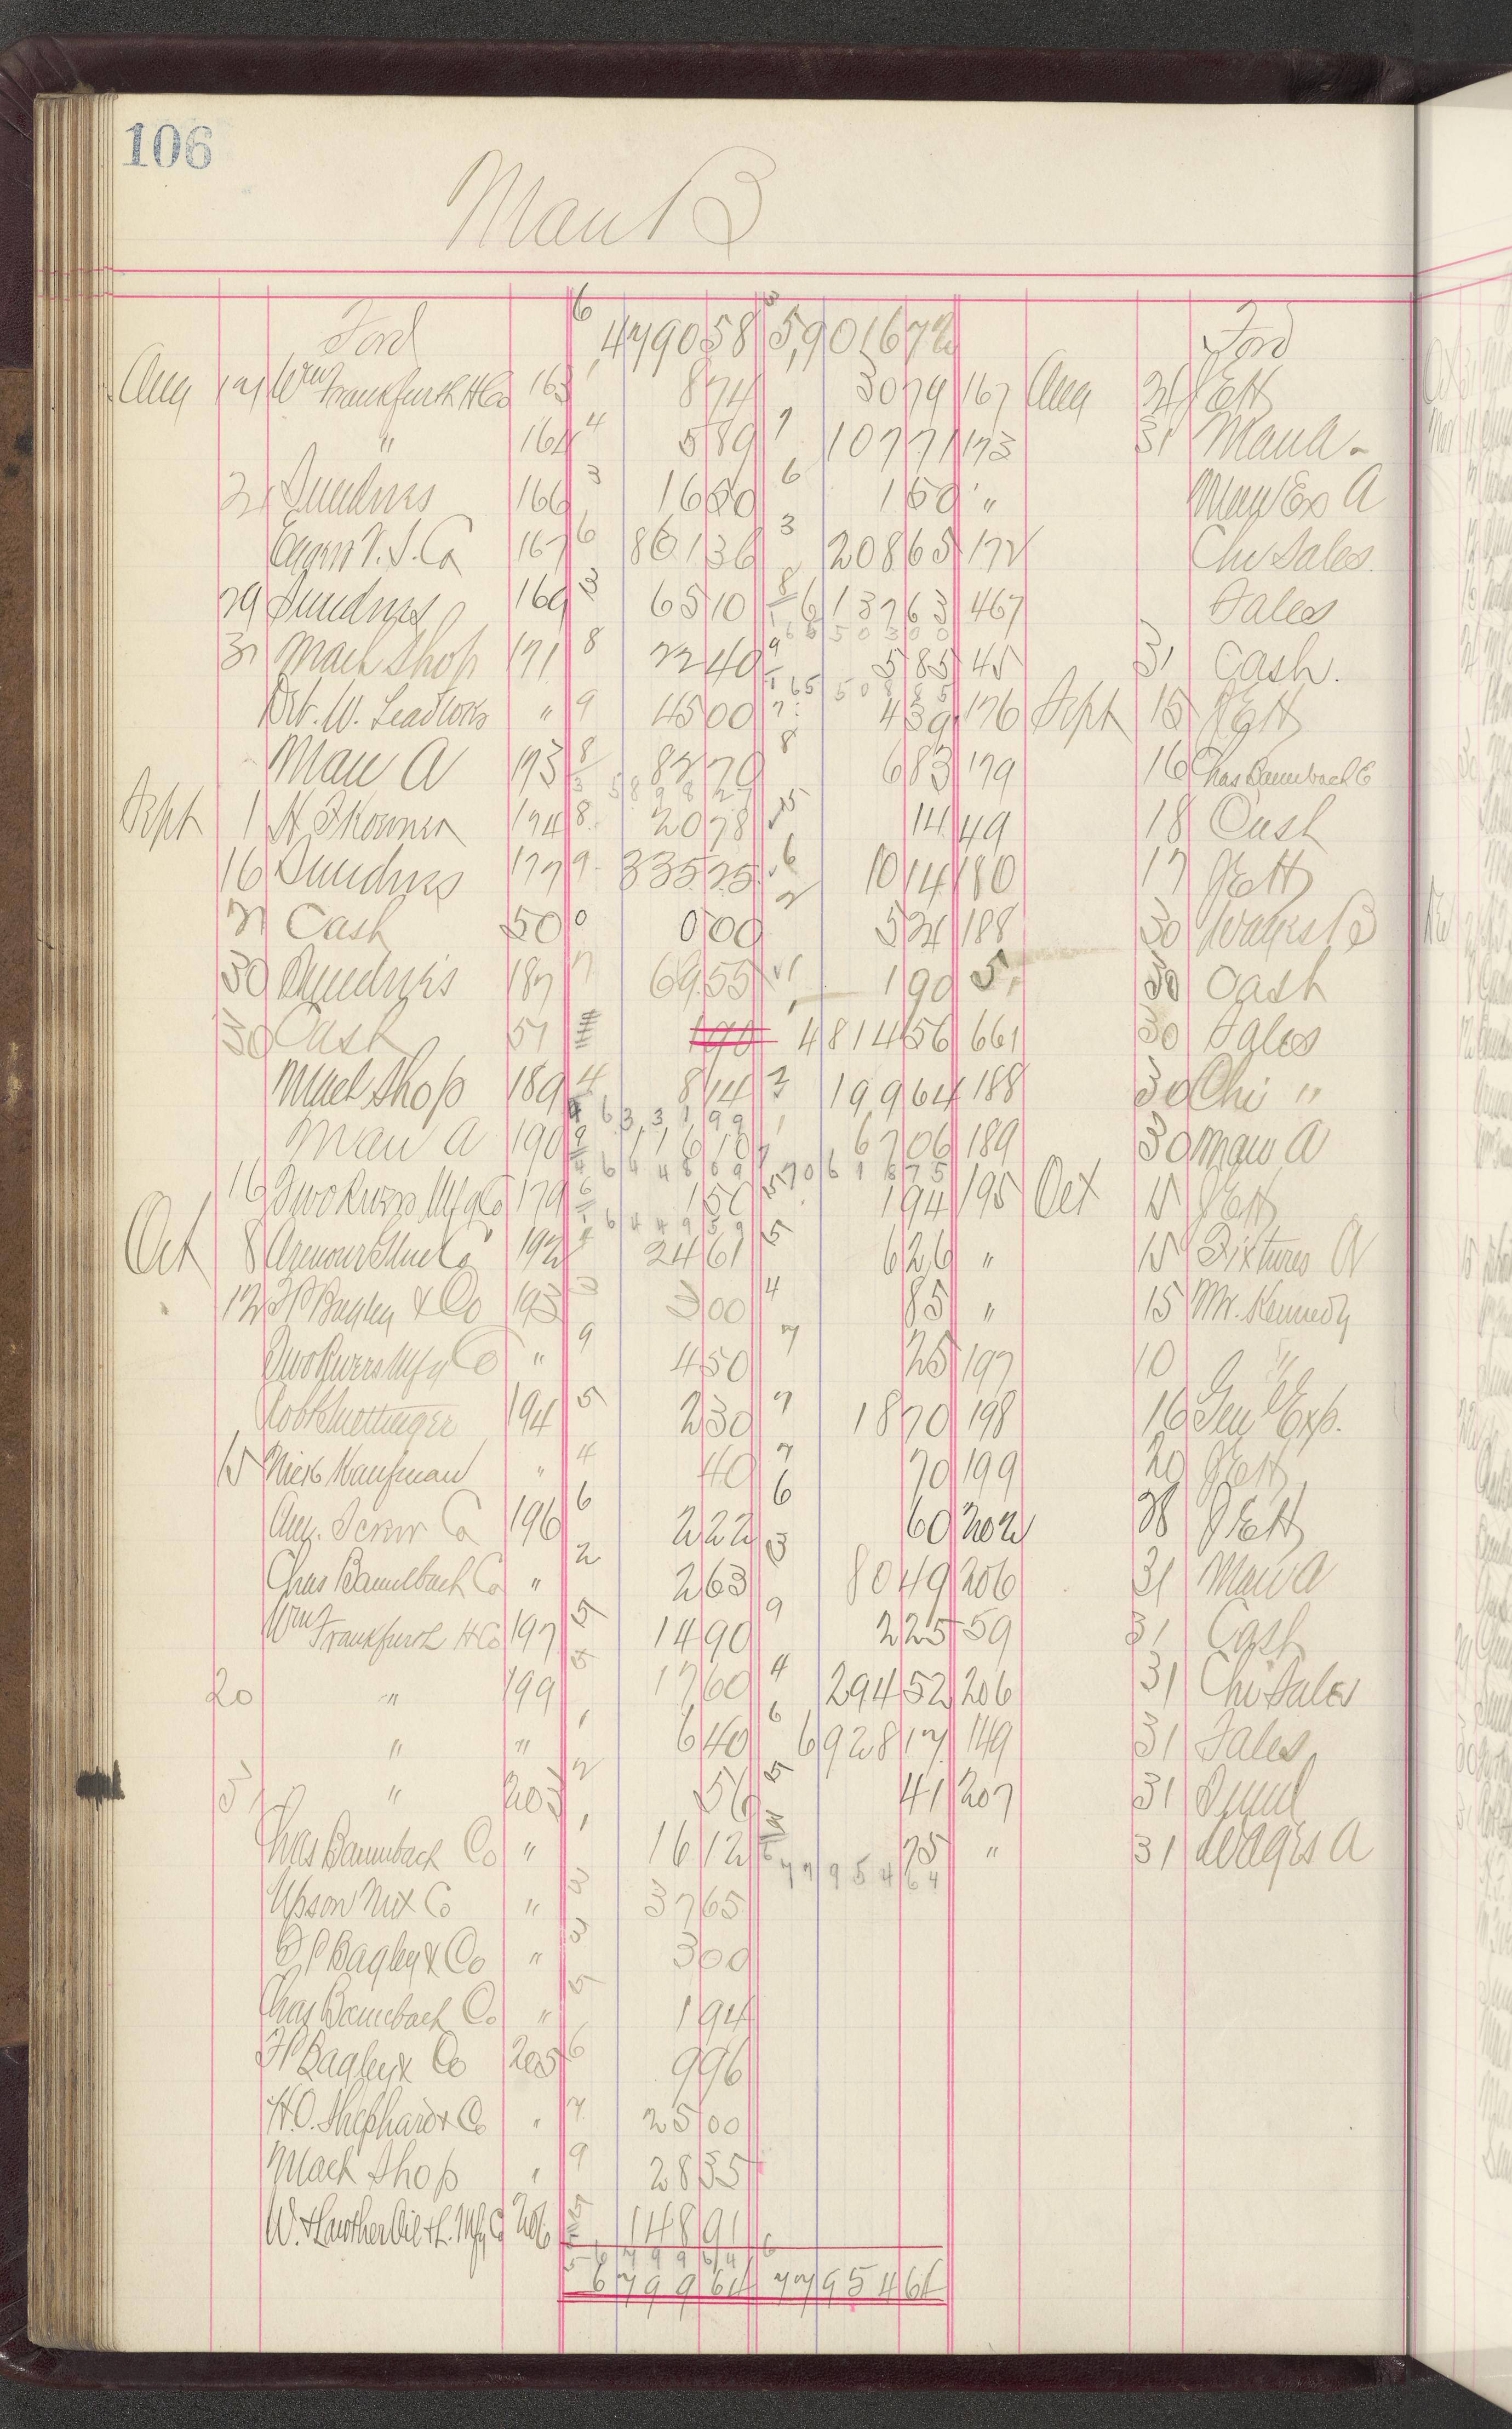 106
Man B
Ford 6 4,790 58 3 5,901 6 72 Ford
Aug 14 Wm Frankfurth H Co 163 8 74 30 79 167 Aug 21 J E H
" 164 4 5 89 7 107 71 173 31 Man A
21 Sundries 166 3 16 80 6 1 50 " Man Ex A
167 6 861 36 3 208 65 172 Chi Sales
29 Sundries 169 3 65 10 8 6137 63 467 Sales
665030 0
31 Mach Shop 171 8 22 40 9 5 85 45 31 Cash.
6550885
Det. W. Lead Works " 9 45 00 7 4 39 176 Sept 15 J E H
Man A 173 8 82 70 8 6 83 179 16 Chas Baumbach Co
589827
Sept 1 174 8 20 78 14 49 18 Cash
16 Sundries 177 9 335 25 6 10 14 180 17 J E H
21 Cash 50 0 0 00 2 5 24 188 30 Wages B
30 Sundries 187 7 69 55 1 1 90 5 30 Cash
30 Cash 51 1 90 4814 56 661 30 Sales
Mach Shop 189 4 8 14 3 199 64 188 30 Chi "
633,199
Man A 190 9 116 10 67 06 189 30 Man A
644809 7061675
16 Two Rivers Mfg Co 179 6 1 50 5 1 94 195 Oct 15 J E H
644959
Oct 8 Armour Glue Co 192 4 24 61 5 6 26 " 15 Fixtures A
12 F P Bagley & Co 193 3 3 00 4 85 " 15 Mr. Kennedy
Two Rivers Mfg Co " 9 4 50 7 25 197 10 "
194 5 2 30 7 18 70 198 16 Genl Exp.
15 Nick Kaufman " 4 40 7 70 199 20 J E H
Am. Screw Co 196 6 2 22 6 60 202 28 J E H
Chas Baumbach Co " 2 2 63 3 80 49 206 31 Man A
Wm Frankfurth H Co 197 5 14 90 9 2 25 59 31 Cash
20 " 199 5 17 60 4 294 52 206 31 Chi Sales
" " 1 6 40 6 6928 17 149 31 Sales
31 " 203 2 56 5 41 207 31 Sund
Chas Baumbach Co " 1 16 12 75 " 31 Wages A
7795464
Upson Nut Co " 3 37 65
F P Bagley & Co " 3 3 00
Chas Baumbach Co " 5 1 94
F P Bagley & Co 205 6 9 96
H.O. Shephard & Co " 7 25 00
Mach Shop " 9 28 35
W. H Lawther Oil & L. Mfg Co 206 5 148 91
679964
6799 64 77954 64